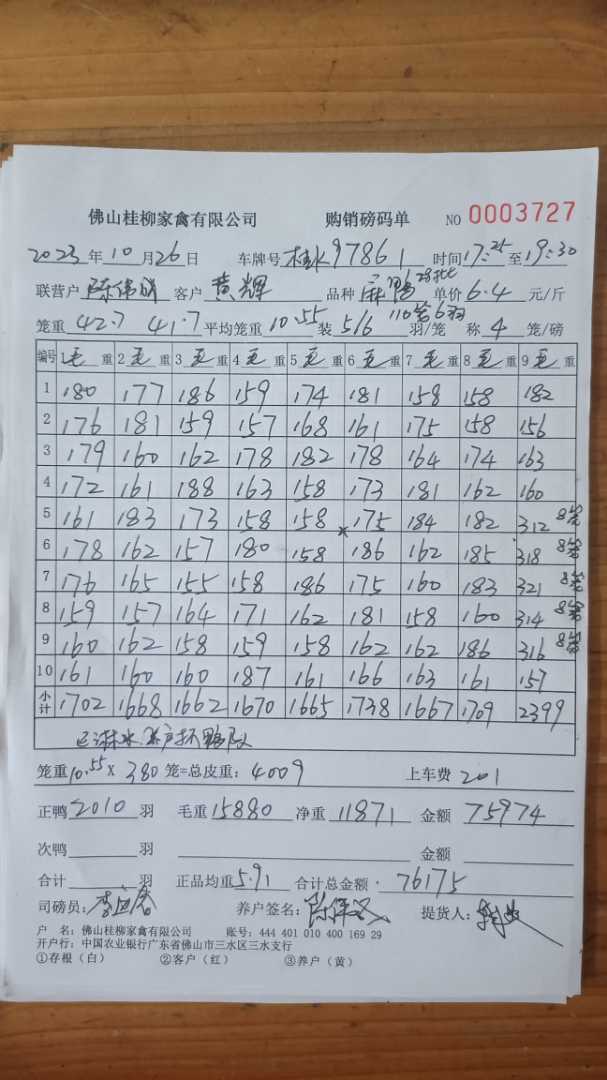 佛山桂柳家禽有限公司 购销磅码单 NO 0003727
2023年10月26日 车牌号 桂K97861 时间17:25至19:30
联营户 客户 黄辉 品种 麻鸭 单价6.4元/斤
110笼6羽
笼重 42.7 41.7 平均笼重10.55 装 5/6 羽/笼 称 4 笼/磅
编号 毛重 2毛重 3毛重 4毛重 5毛重 6毛重 7毛重 8毛重 9毛重
1 180 177 186 159 174 181 158 158 182
2 176 181 159 157 168 161 175 158 156
3 179 160 162 178 182 178 164 174 163
4 172 161 188 163 158 173 181 162 160
5 161 183 173 158 158 ×175 184 182 312 8笼
6 178 162 157 180 158 186 162 185 318 8笼
7 176 165 155 158 186 175 160 183 321 8笼
8 159 157 164 171 162 181 158 160 314 8笼
9 160 162 158 159 158 162 162 186 316 8笼
10 161 160 160 187 161 166 163 161 157
小计 1702 1668 1662 1670 1665 1738 1667 1709 2399
已淋水
笼重10.55× 380 笼=总皮重:4009 上车费 201
正鸭 2010 羽 毛重 15880 净重 11871 金额 75974
次鸭 羽 金额
合计 羽 正品均重5.91 合计总金额· 76175
司磅员: 养户签名: 提货人:
户 名: 佛山桂柳家禽有限公司 账号: 444 401 010 400 169 29
开户行: 中国农业银行广东省佛山市三水区三水支行
①存根(白) ②客户(红) ③养户(黄)